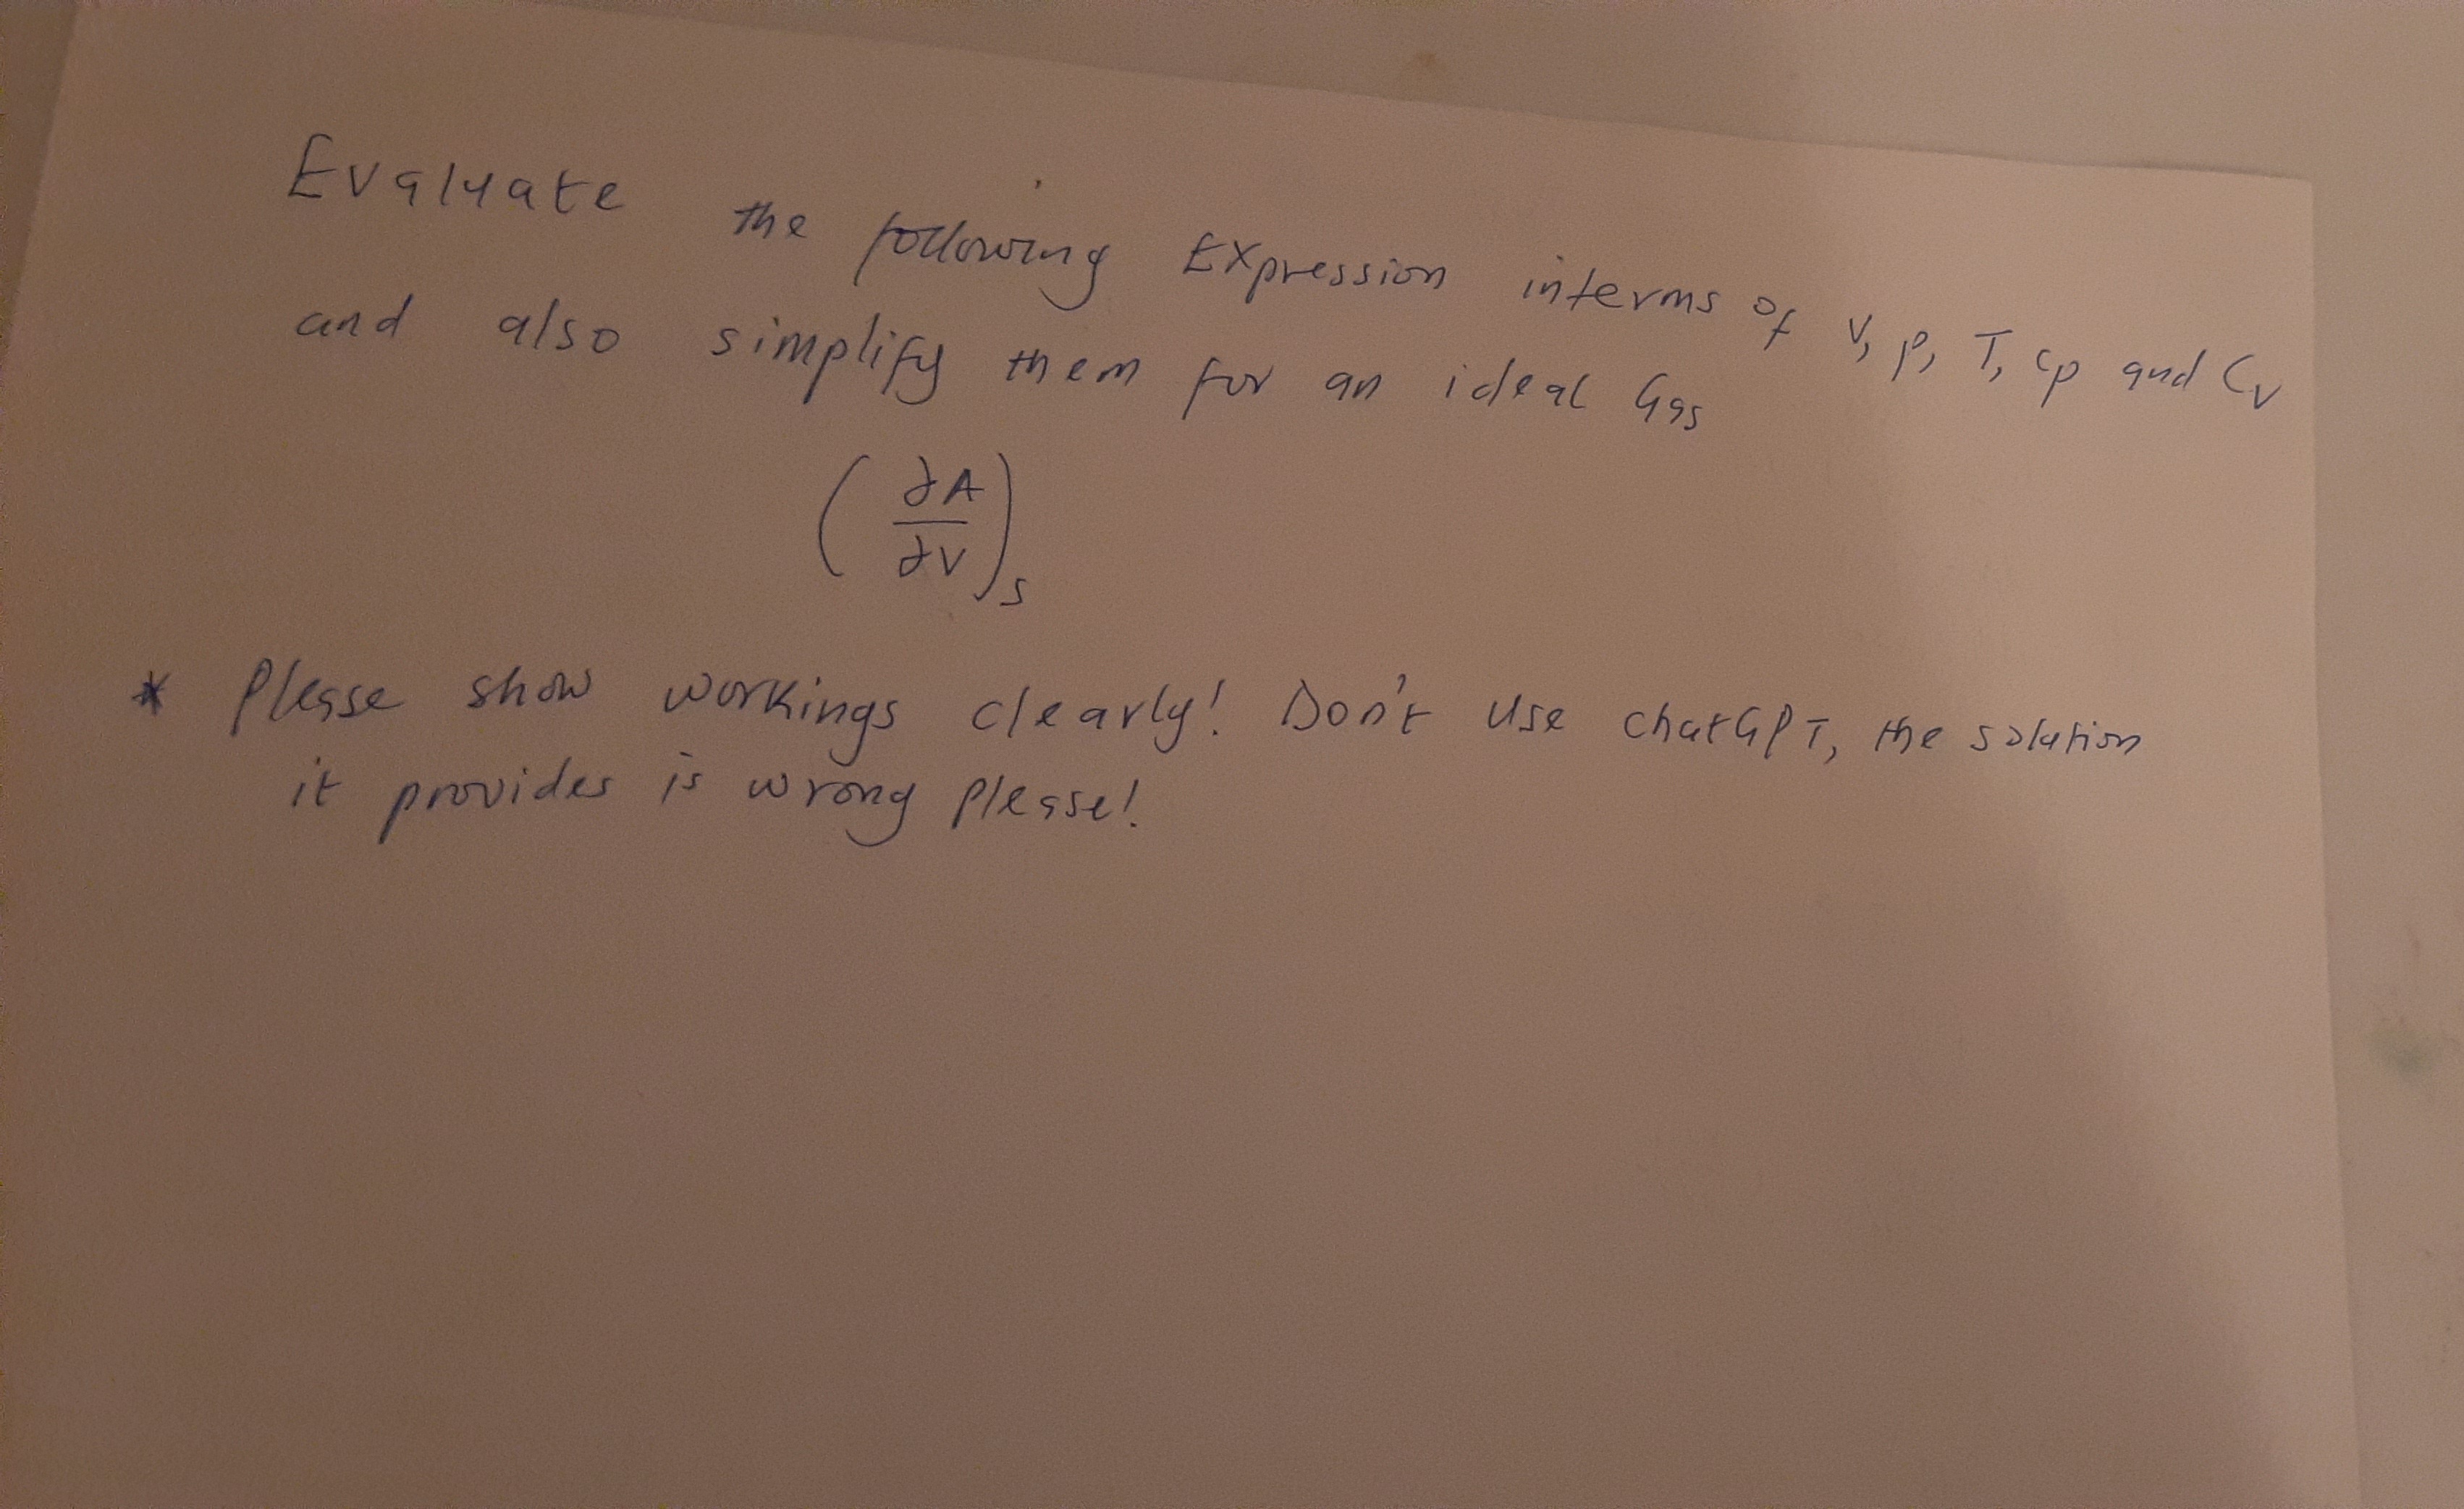 Evaluate the following Expression interms of V, P, T, Cp and Cv
and also simplify them for an ideal Gas
(∂A/∂V)s
* Please show workings clearly! Don't use chatGPT, the solution
it provides is wrong please!